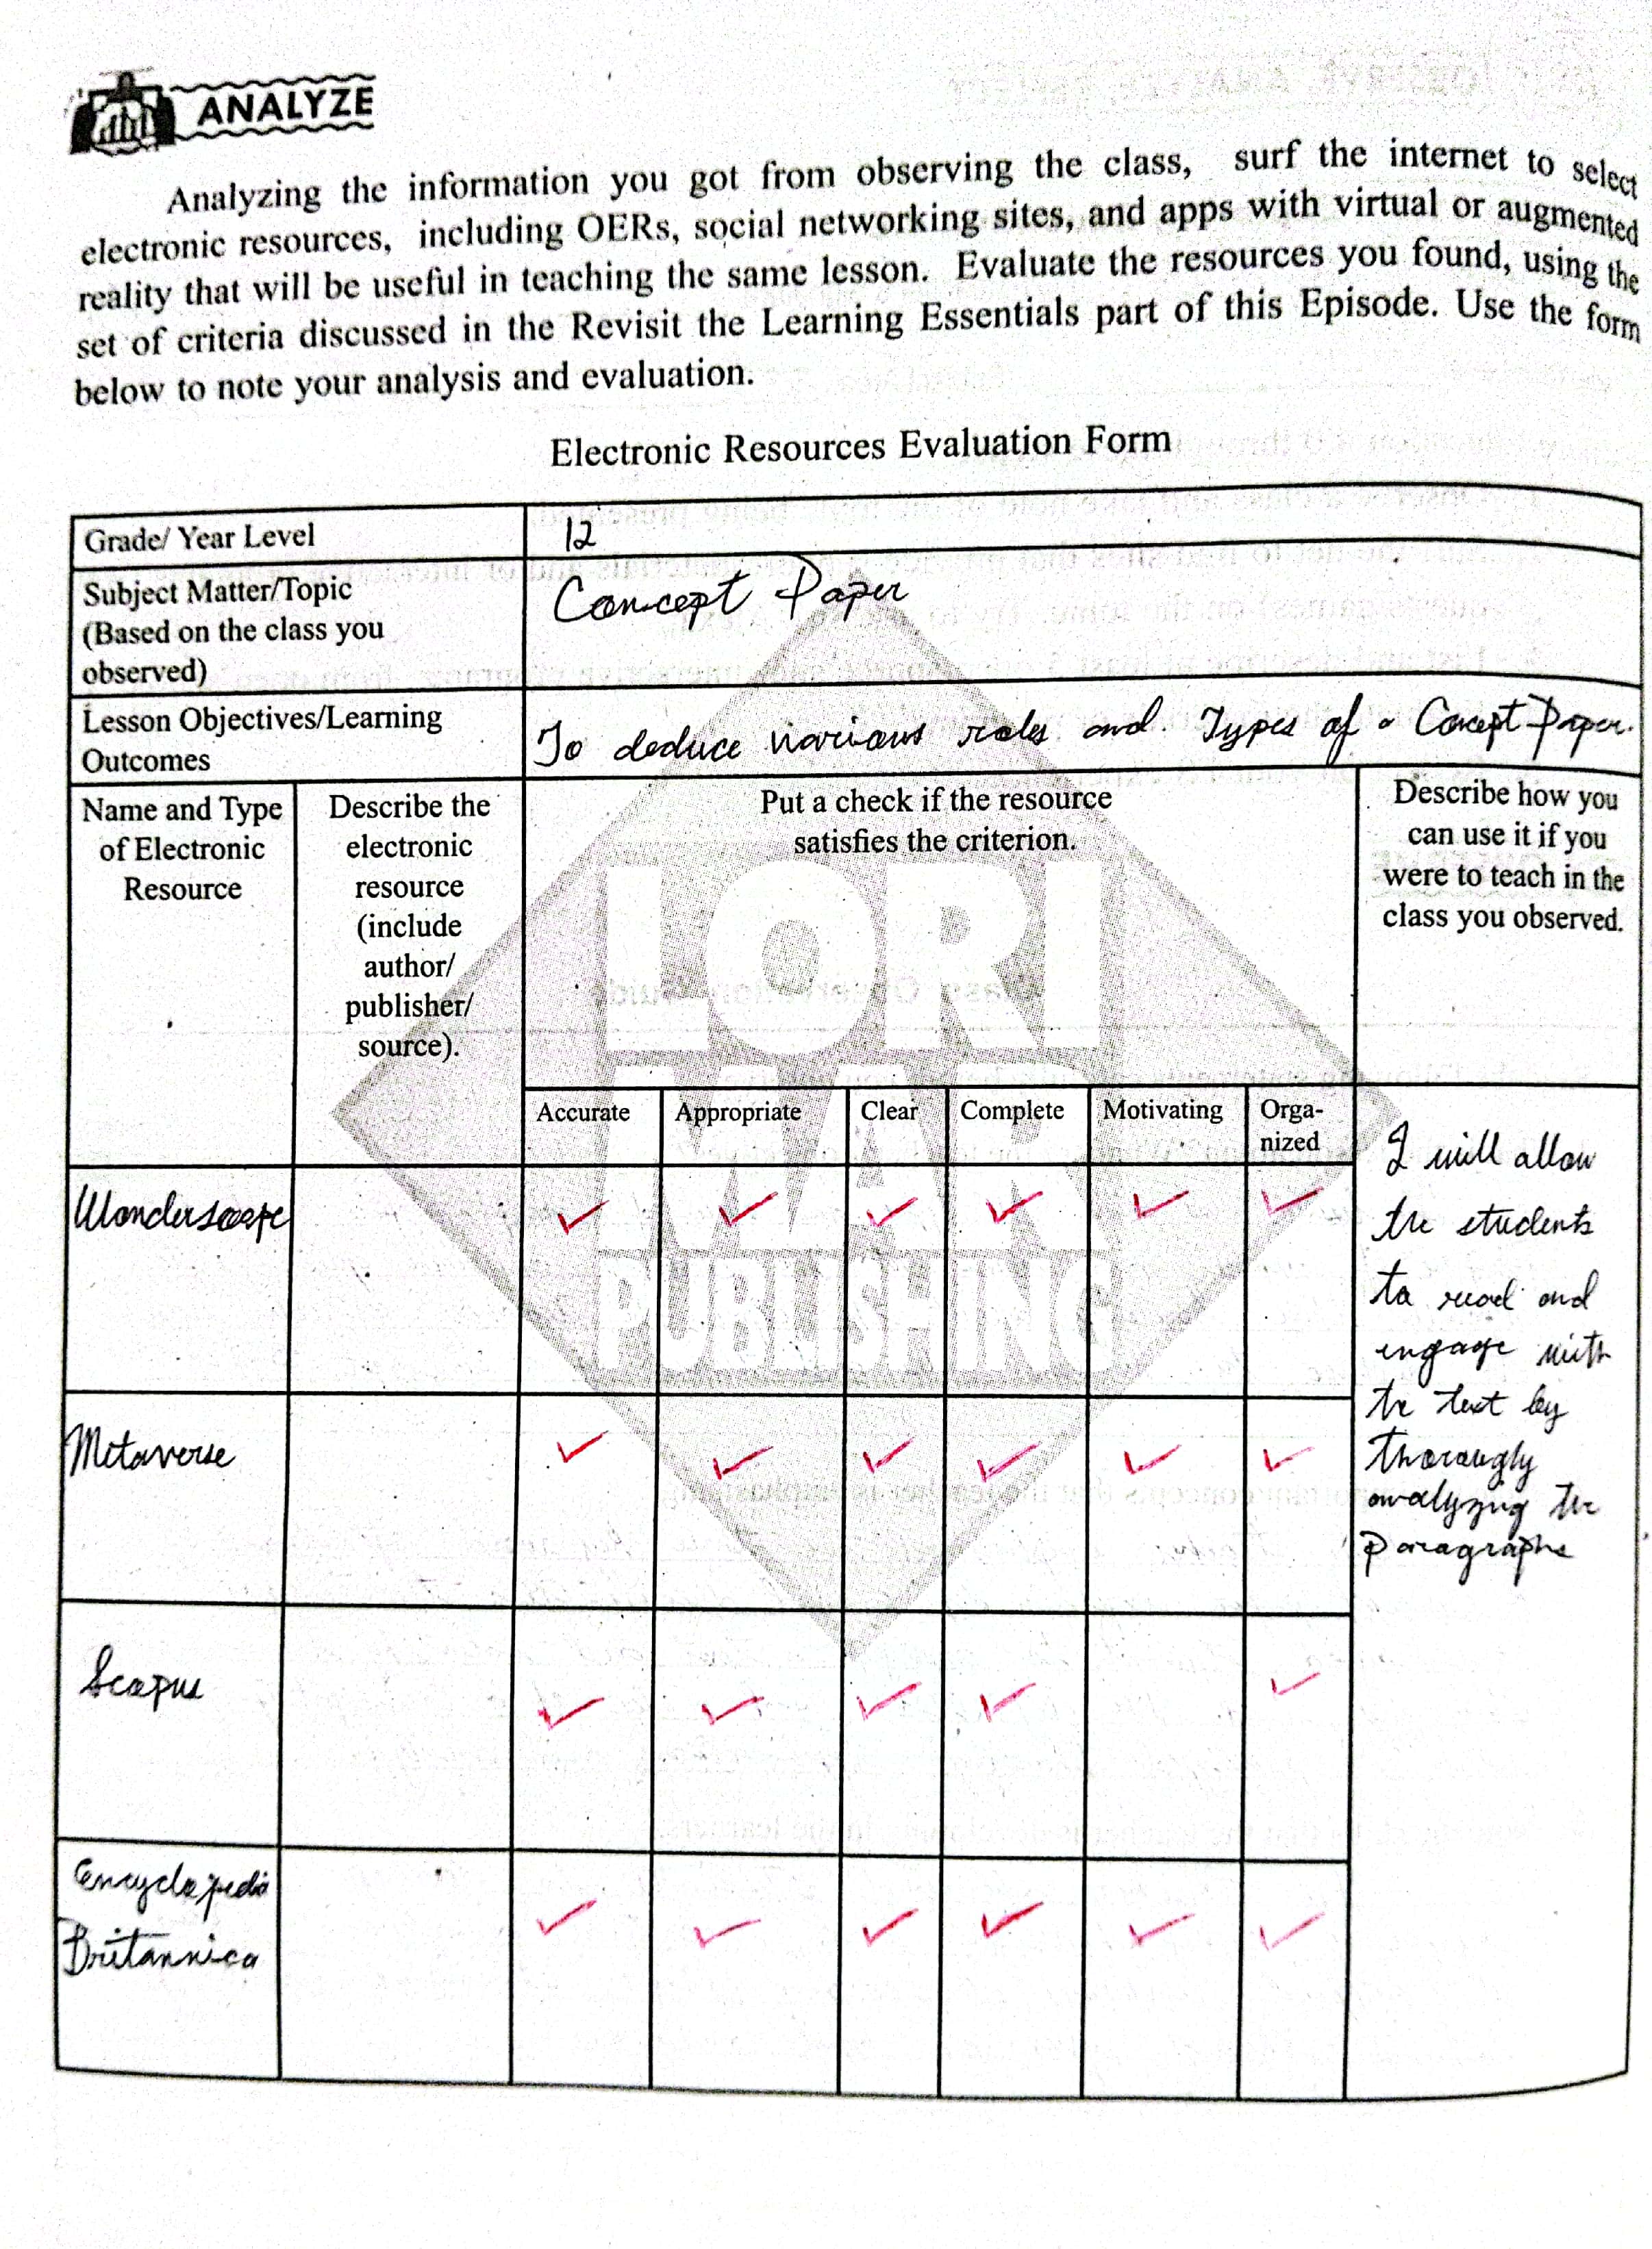 ANALYZE
Analyzing the information you got from observing the class, surf the internet to select
electronic resources, including OERs, social networking sites, and apps with virtual or augmented
reality that will be useful in teaching the same lesson. Evaluate the resources you found, using the
set of criteria discussed in the Revisit the Learning Essentials part of this Episode. Use the form
below to note your analysis and evaluation.
Electronic Resources Evaluation Form
Grade/ Year Level
12
Subject Matter/Topic
(Based on the class you
observed)
Concept Paper
Lesson Objectives/Learning
Outcomes
To deduce various roles and Types of a Concept Paper.
Name and Type
of Electronic
Resource
Describe the
electronic
resource
(include
author/
publisher/
source).
Put a check if the resource
satisfies the criterion.
Describe how you
can use it if you
were to teach in the
class you observed.
Accurate
Appropriate
Clear
Complete
Motivating
Orga-
nized
Wonderscope
✓ ✓ ✓ ✓ ✓ ✓
Metaverse
✓ ✓ ✓ ✓ ✓ ✓
Scopus
✓ ✓ ✓ ✓ ✓
Encyclopedia
Britannica
✓ ✓ ✓ ✓ ✓ ✓
I will allow
the students
to read and
engage with
the text by
thoroughly
analyzing the
paragraphs
LORI
MAR
PUBLISHING